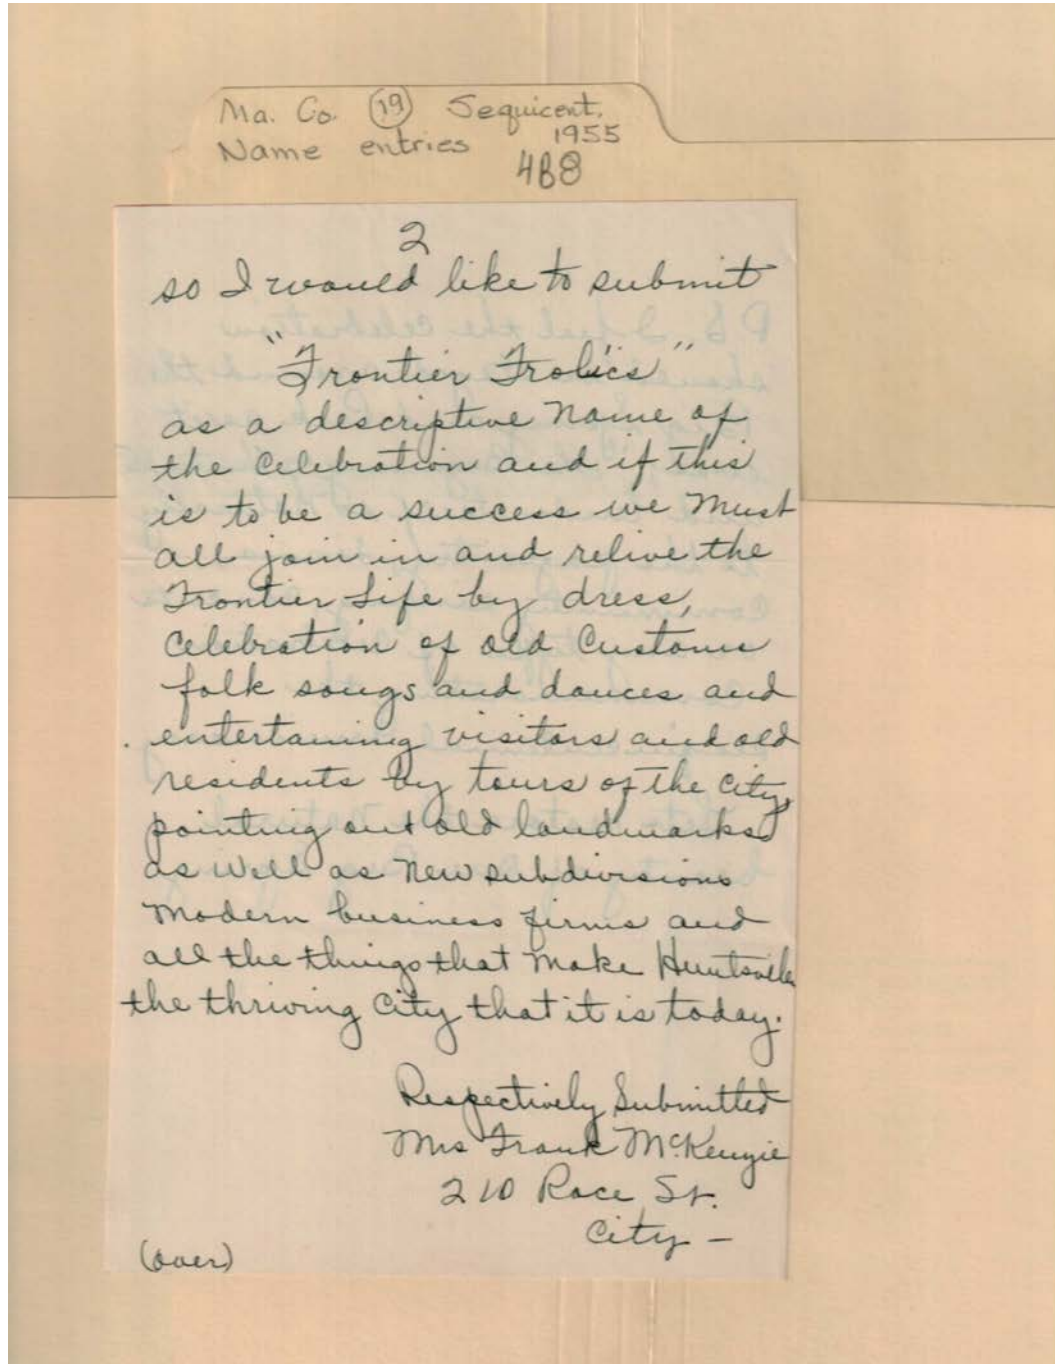 Ma. Co. (19) Sequicent.
1955
Name entries
4B8
2
so I would like to submit
"Frontier Frolics"
as a descriptive name of
the Celebration and if this
is to be a success we must
all join in and relive the
Frontier Life by dress,
Celebration of old Customs
folk songs and dances and
entertaining visitors and old
residents by tours of the City,
pointing out old landmarks
as well as new subdivisions
modern business firms and
all the things that make Huntsville
the thriving City that it is today.
Respectively Submitted
Mrs Frank McKenzie
210 Race St.
City -
(over)